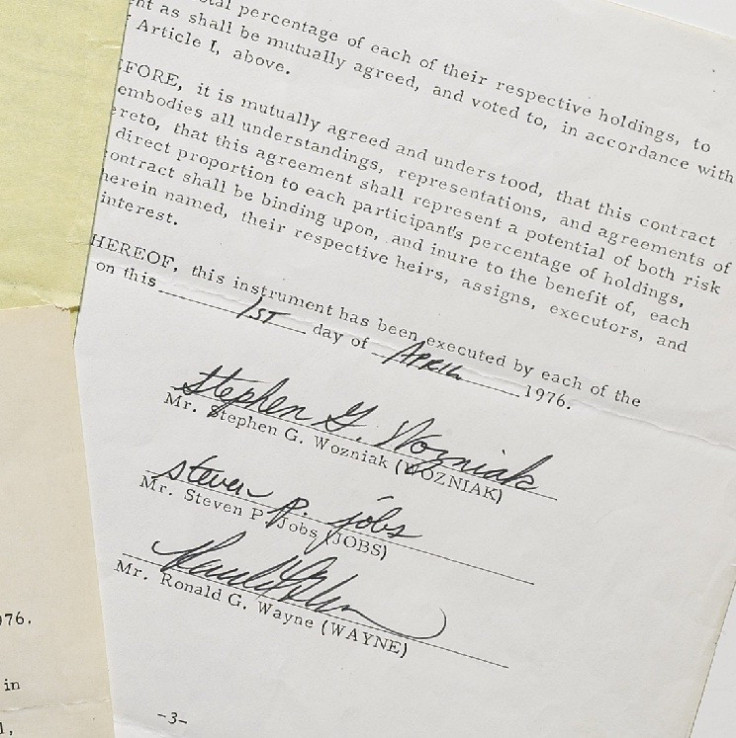 percentage of each of their respective holdings, to
as shall be mutually agreed, and voted to, in accordance with
Article I, above.
it is mutually agreed and understood, that this contract
embodies all understandings, representations, and agreements of
that this agreement shall represent a potential of both risk
direct proportion to each participant's percentage of holdings,
shall be binding upon, and inure to the benefit of, each
herein named, their respective heirs, assigns, executors, and
interest.
HEREOF, this instrument has been executed by each of the
on this 1ST day of APRIL 1976.
Stephen G. Wozniak
Mr. Stephen G. Wozniak (WOZNIAK)
steven p. jobs
Mr. Steven P. Jobs (JOBS)
Mr. Ronald G. Wayne (WAYNE)
-3-
976.
in